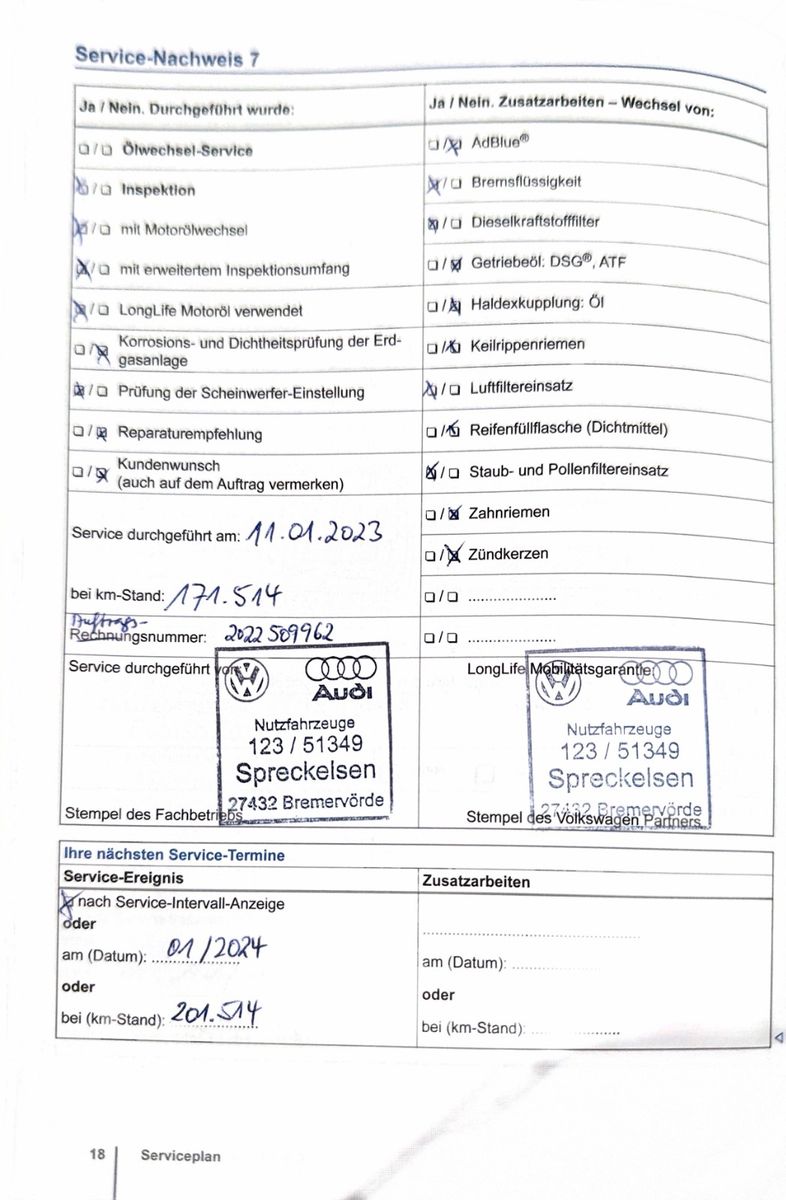 Service-Nachweis 7
Ja / Nein. Durchgeführt wurde:
☐ / ☐ Ölwechsel-Service
☒ / ☐ Inspektion
☒ / ☐ mit Motorölwechsel
☒ / ☐ mit erweitertem Inspektionsumfang
☒ / ☐ LongLife Motoröl verwendet
☐ / ☒ Korrosions- und Dichtheitsprüfung der Erd-
gasanlage
☒ / ☐ Prüfung der Scheinwerfer-Einstellung
☐ / ☒ Reparaturempfehlung
☐ / ☒ Kundenwunsch
(auch auf dem Auftrag vermerken)
Service durchgeführt am: 11.01.2023
bei km-Stand: 171.514
Auftrags-
Rechnungsnummer: 2022509962
Service durchgeführt von:
Audi
Nutzfahrzeuge
123 / 51349
Spreckelsen
27432 Bremervörde
Stempel des Fachbetriebs
Ja / Nein. Zusatzarbeiten – Wechsel von:
☐ / ☒ AdBlue®
☒ / ☐ Bremsflüssigkeit
☒ / ☐ Dieselkraftstofffilter
☐ / ☒ Getriebeöl: DSG®, ATF
☐ / ☒ Haldexkupplung: Öl
☐ / ☒ Keilrippenriemen
☒ / ☐ Luftfiltereinsatz
☐ / ☒ Reifenfüllflasche (Dichtmittel)
☒ / ☐ Staub- und Pollenfiltereinsatz
☐ / ☒ Zahnriemen
☐ / ☒ Zündkerzen
☐ / ☐ .....................
☐ / ☐ .....................
LongLife Mobilitätsgarantie:
Audi
Nutzfahrzeuge
123 / 51349
Spreckelsen
27432 Bremervörde
Stempel des Volkswagen Partners
Ihre nächsten Service-Termine
Service-Ereignis
☒ nach Service-Intervall-Anzeige
oder
am (Datum): 01/2024
oder
bei (km-Stand): 201.514
Zusatzarbeiten
am (Datum):
oder
bei (km-Stand):
18 Serviceplan